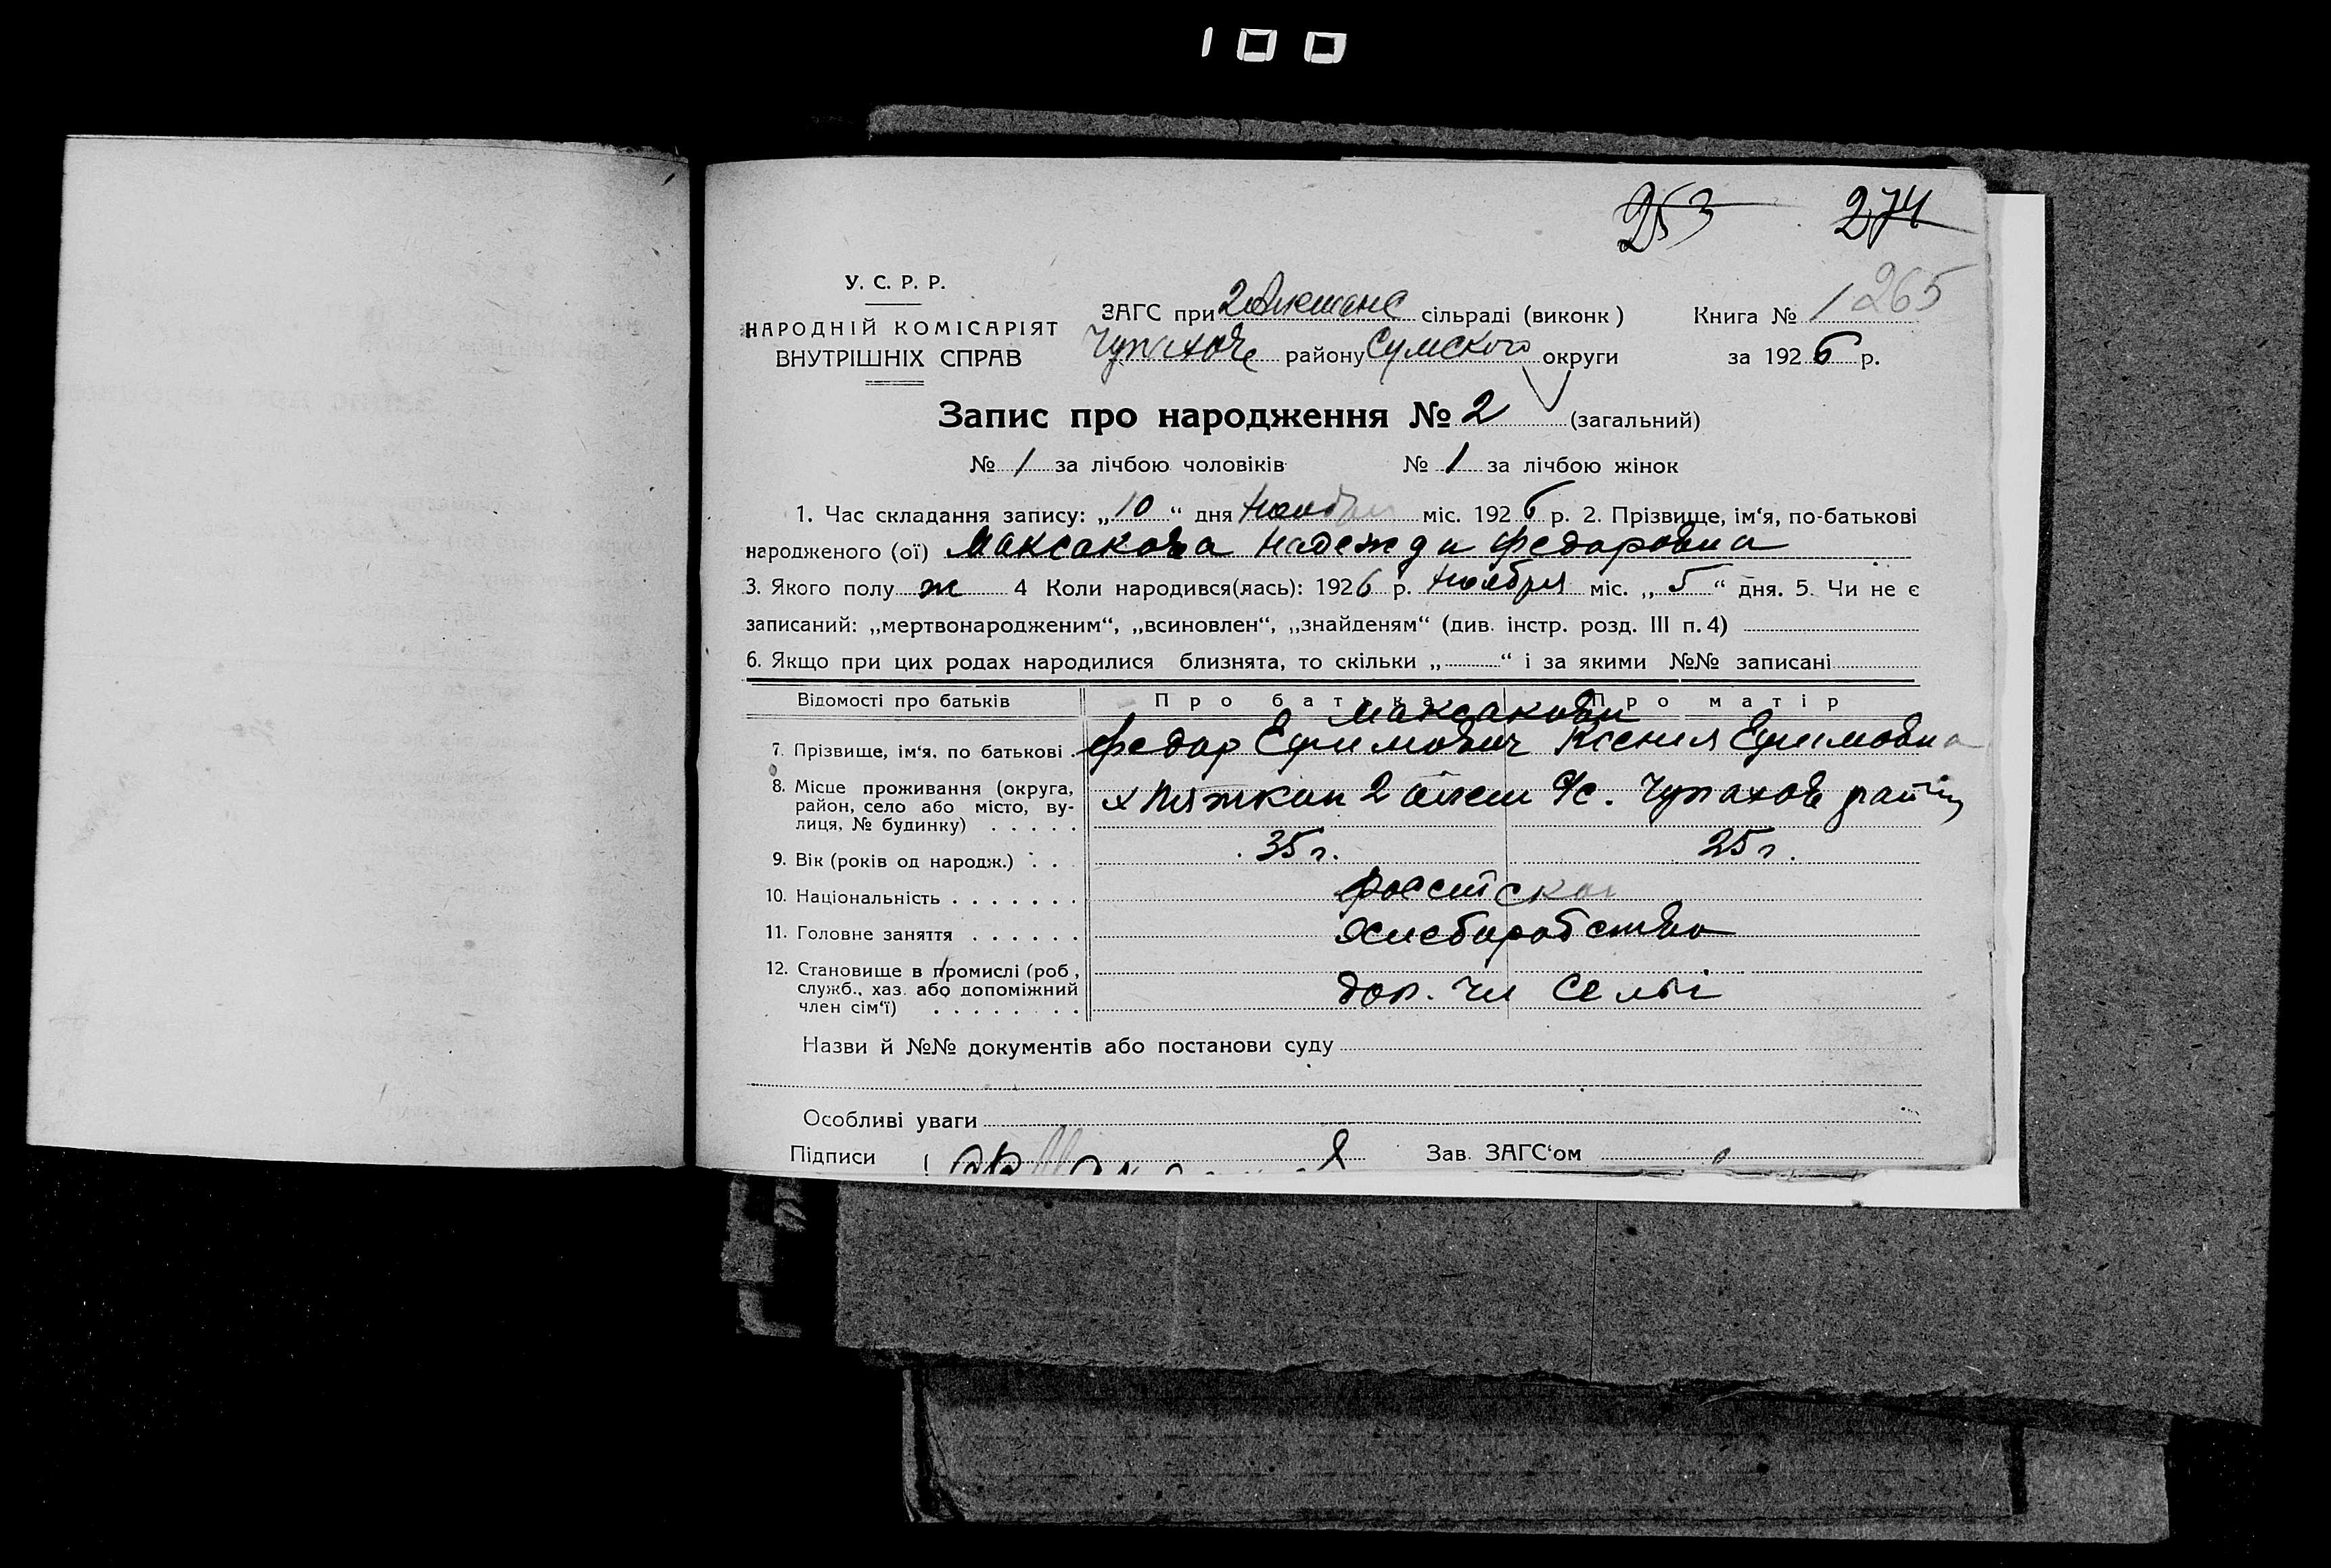 100
253 274
У. С. Р. Р.
НАРОДНІЙ КОМІСАРІЯТ
ВНУТРІШНІХ СПРАВ
ЗАГС при 2 сільраді (виконк) Книга № 1 265
району Сумского округи за 1926 р.
Запис про народження № 2 (загальний)
№ 1 за лічбою чоловіків № 1 за лічбою жінок
1. Час складання запису: „10“ дня ноября міс. 1926 р. 2. Прізвище, ім‘я, по-батькові
народженого (ої) Максакова Надежда Федоровна
3. Якого полу ж 4 Коли народився(лась): 1926 р. ноября міс. „5“ дня. 5. Чи не є
записаний: „мертвонародженим“, „всиновлен“, „знайденям“ (див. інстр. розд. III п. 4)
6. Якщо при цих родах народилися близнята, то скільки „ “ і за якими №№ записані
Відомості про батьків Про батька Про матір
Максаковы
7. Прізвище, ім‘я, по батькові Федор Ефимович Ксения Ефимовна
8. Місце проживання (округа,
район, село або місто, ву-
лиця, № будинку)
х 2 с/с. Чупахов
9. Вік (років од народж.) 35 г. 25 г.
10. Національність
11. Головне заняття Хлеборобство
12. Становище в промислі (роб,
служб., хаз. або допоміжний
член сім‘ї)
доп. чл семьі
Назви й №№ документів або постанови суду
Особливі уваги
Підписи Зав. ЗАГС‘ом